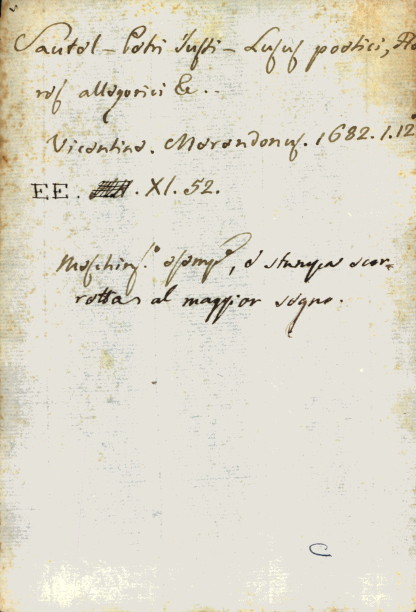 Sautel - Petri Justi - Lusus poetici, Flo
res allegorici &c..
Vicentinæ. Morandonus. 1682. 1. 12°
EE. . XI. 52.
Meschinis.° esemp.e, è stampa scor-
retta al maggior segno.
C